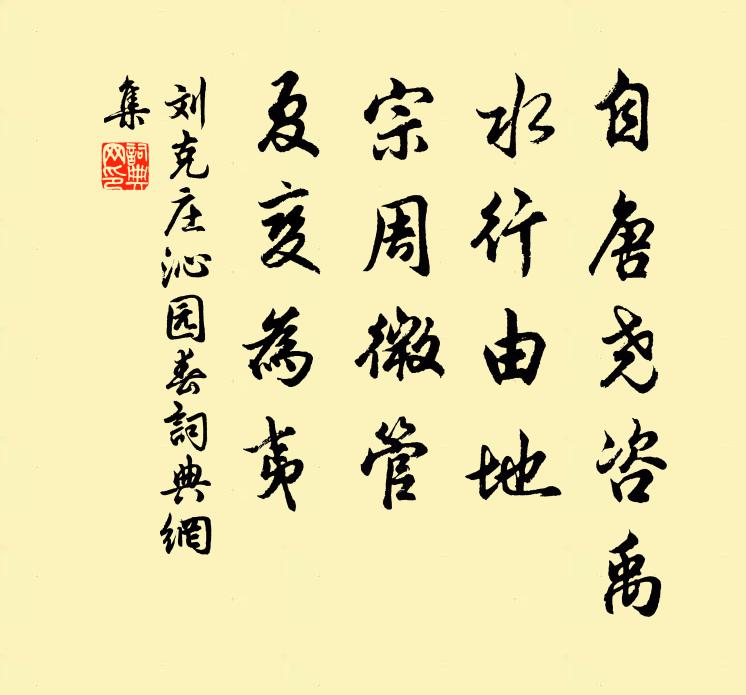 自唐尧咨禹
水行由地
宗周微管
夏变為夷
刘克庄沁园春詞典網
集
詞典
网印